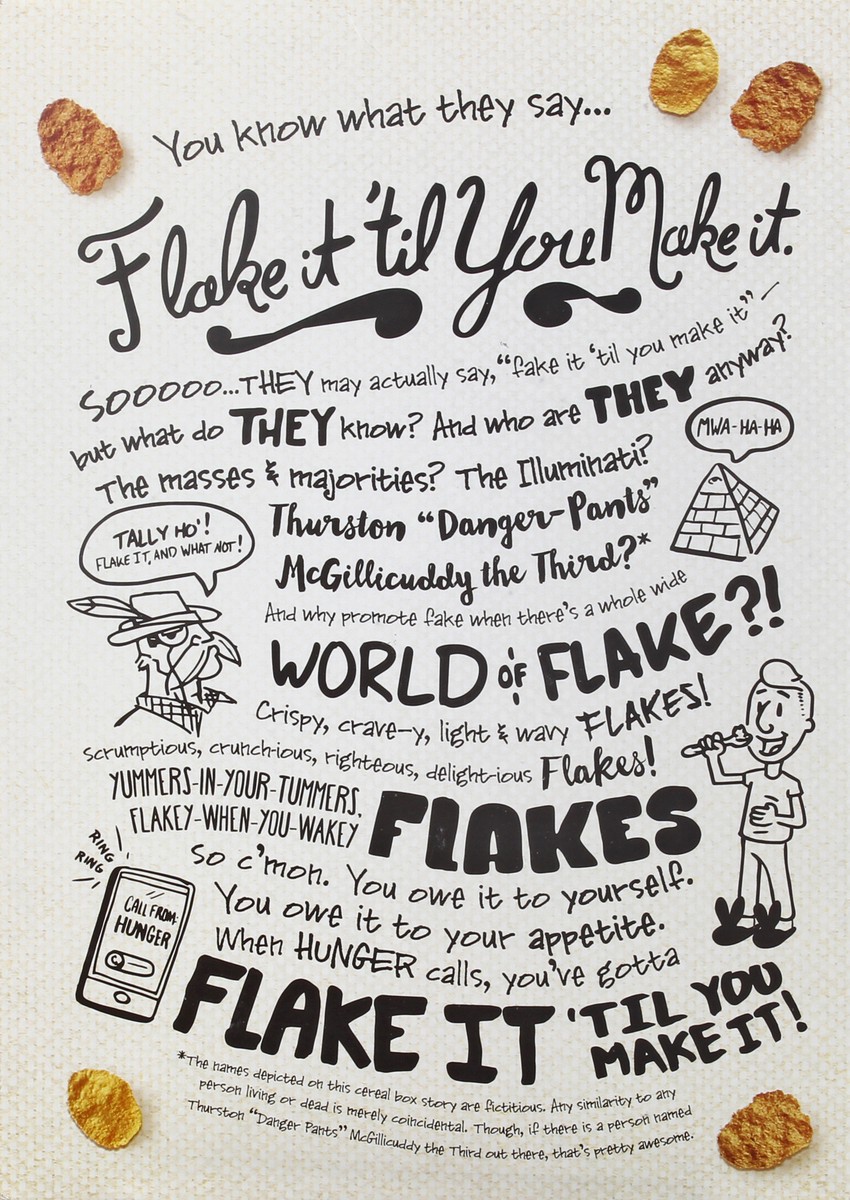 You know what they say...
Flake it 'til You Make it.
SOOOOOO...THEY may actually say, “fake it ‘til you make it” –
but what do THEY know? And who are THEY anyway?
MWA-HA-HA
The masses & majorities? The Illuminati?
Thurston “Danger-Pants”
McGillicuddy the Third?*
TALLY HO'!
FLAKE IT, AND WHAT NOT!
And why promote fake when there's a whole wide
WORLD OF FLAKE?!
Crispy, crave-y, light & wavy FLAKES!
scrumptious, crunch-ious, righteous, delight-ious Flakes!
YUMMERS-IN-YOUR-TUMMERS,
FLAKEY-WHEN-YOU-WAKEY
FLAKES
RING
RING
CALL FROM:
HUNGER
So c'mon. You owe it to yourself.
You owe it to your appetite.
When HUNGER calls, you've gotta
FLAKE IT 'TIL YOU
MAKE IT!
*The names depicted on this cereal box story are fictitious. Any similarity to any
person living or dead is merely coincidental. Though, if there is a person named
Thurston “Danger Pants” McGillicuddy the Third out there, that's pretty awesome.